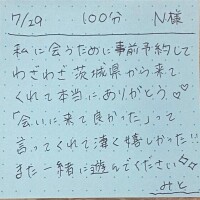 7/29 100分 N様
私に会うために事前予約して
わざわざ茨城県から来て
くれて本当にありがとう♡♡
「会いに来て良かった」って
言ってくれて凄く嬉しかった!!
また一緒に遊んでください
みと